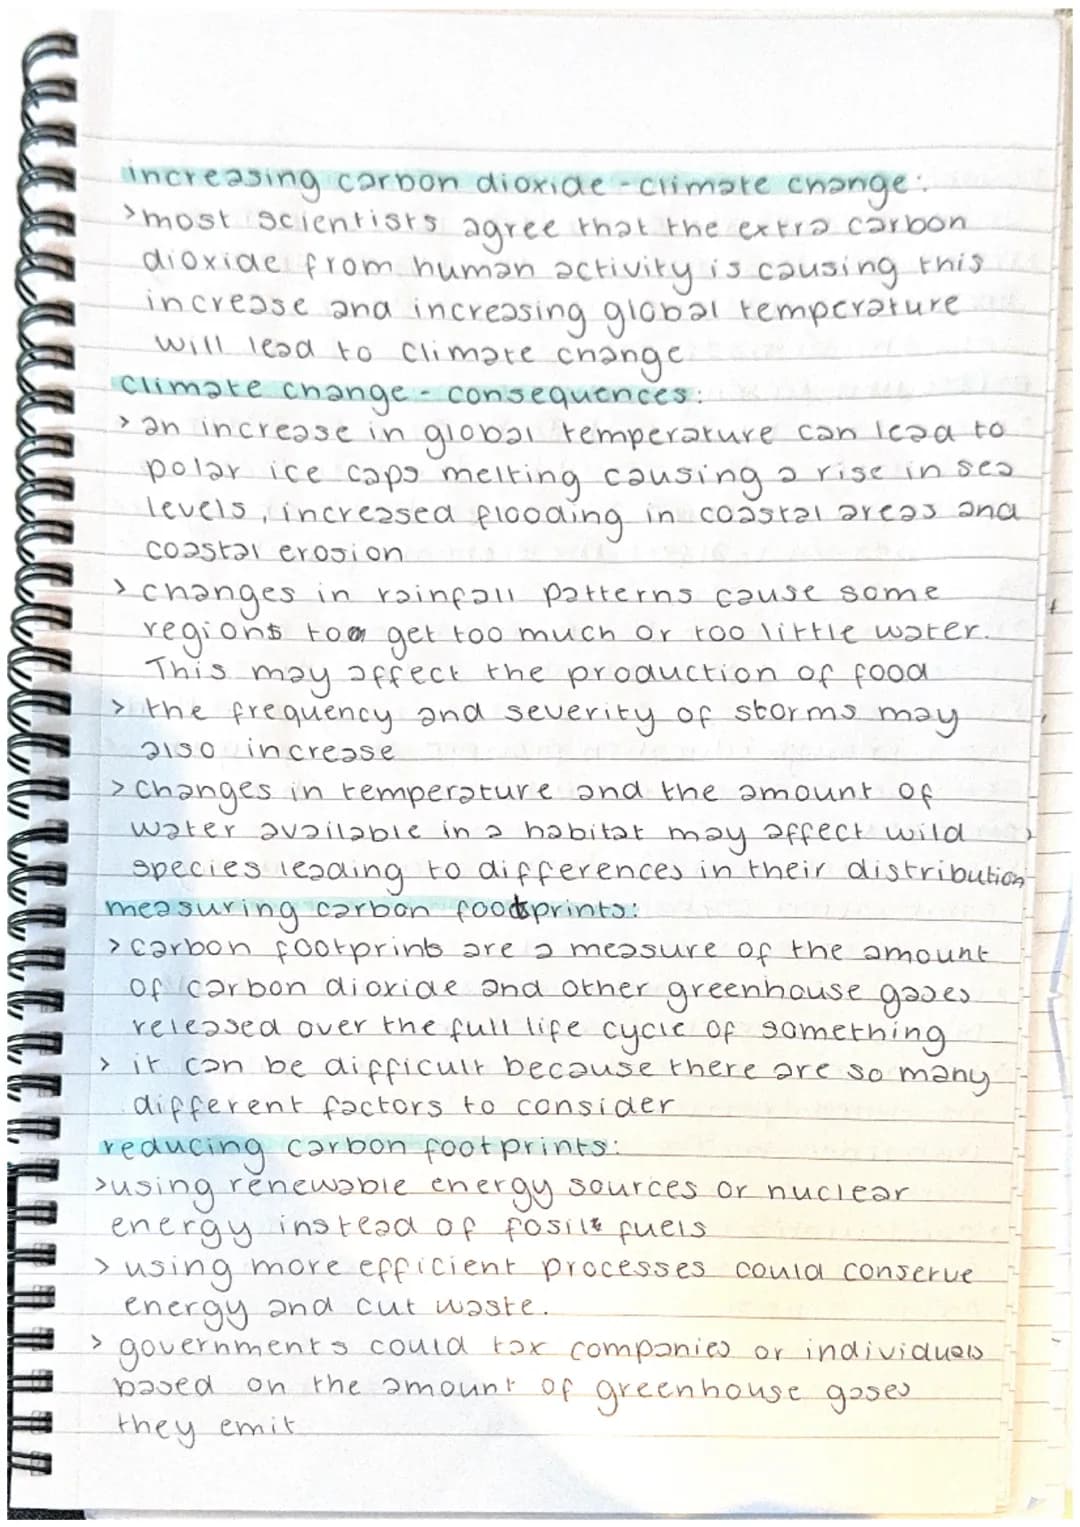 increasing carbon dioxide - climate change:
> most scientists agree that the extra carbon
dioxide from human activity is causing this
increase and increasing global temperature
will lead to climate change
climate change - consequences:
> an increase in global temperature can lead to
polar ice caps melting causing a rise in sea
levels, increased flooding in coastal areas and
coastal erosion
> changes in rainfall patterns cause some
regions to get too much or too little water.
This may affect the production of food
> the frequency and severity of storms may
also increase
> changes in temperature and the amount of
water available in a habitat may affect wild
species leading to differences in their distribution
measuring carbon footprints:
> carbon footprints are a measure of the amount
of carbon dioxide and other greenhouse gases
released over the full life cycle of something
> it can be difficult because there are so many
different factors to consider
reducing carbon footprints:
> using renewable energy sources or nuclear
energy instead of fosil fuels
> using more efficient processes could conserve
energy and cut waste.
> governments could tax companies or individuals
based on the amount of greenhouse gases
they emit